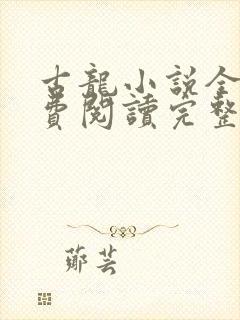 古龍小說全
費閱讀完整
鄭芸